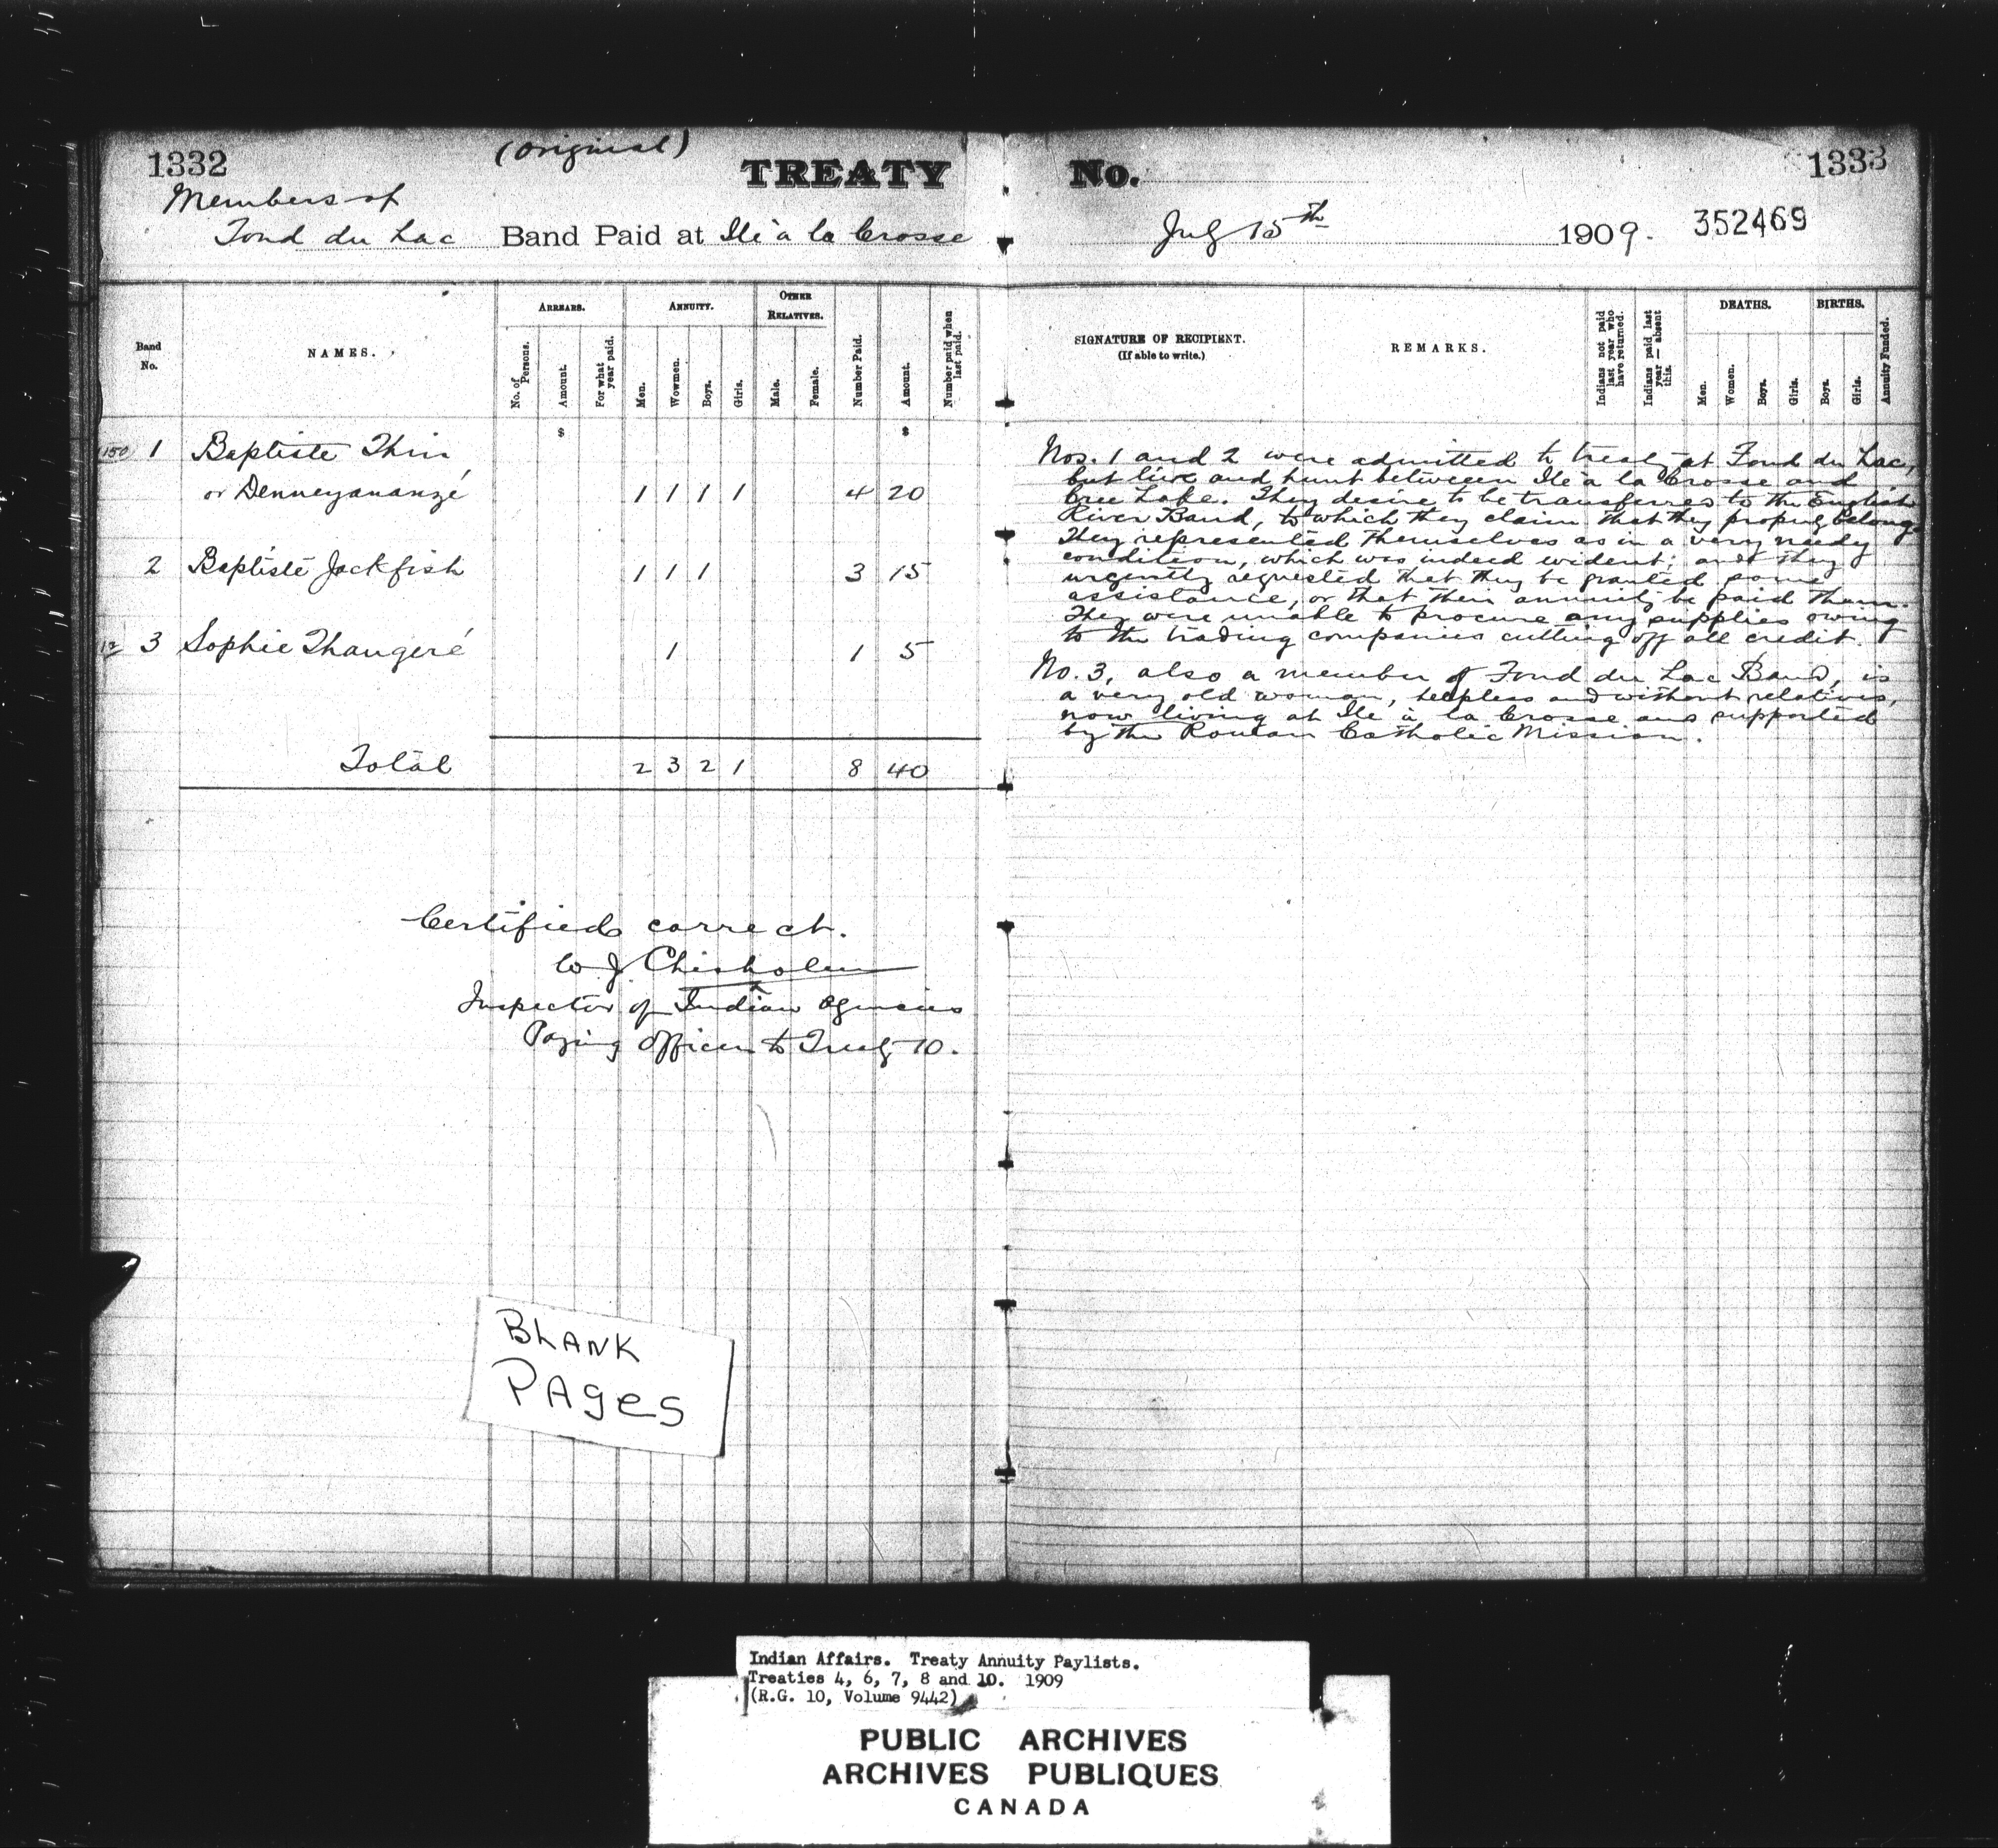 1332
(Original)
TREATY No.
1333
Members of
Fond du Lac Band Paid at Ile à la Crosse July 15th 1909. 352469
Band No.
NAMES.
ARREARS.
No. of Persons.
Amount.
For what year paid.
ANNUITY.
Men.
Wowmen.
Boys.
Girls.
OTHER RELATIVES.
Male.
Female.
Number Paid.
Amount.
Number paid when last paid.
SIGNATURE OF RECIPIENT.
(If able to write.)
REMARKS.
Indians not paid last year who have returned.
Indians paid last year — absent this.
DEATHS.
Men.
Women.
Boys.
Girls.
BIRTHS.
Boys.
Girls.
Annuity Funded.
$ $
150 1 Baptiste Thin
or Denneyananzé 1 1 1 1 4 20
2 Baptiste Jackfish 1 1 1 3 15
3 Sophie Thaugeré 1 1 5
Total 2 3 2 1 8 40
Nos. 1 and 2 were admitted to treaty at Fond du Lac,
but live and hunt between Ile à la Crosse and
Cree Lake. They desire to be transferred to the English
River Band, to which they claim that they properly belong.
They represented themselves as in a very needy
condition, which was indeed evident; and they
urgently requested that they be granted some
assistance, or that their annuity be paid them.
They were unable to procure any supplies owing
to the trading companies cutting off all credit.
No. 3, also a member of Fond du Lac Band, is
a very old woman, helpless and without relatives,
now living at Ile à la Crosse and supported
by the Roman Catholic Mission.
Certified correct.
W J Chisholm
Inspector of Indian Agencies
Paying Officer to Treaty 10.
BLANK
PAges
Indian Affairs. Treaty Annuity Paylists.
Treaties 4, 6, 7, 8 and 10. 1909
(R.G. 10, Volume 9442)
PUBLIC ARCHIVES
ARCHIVES PUBLIQUES
CANADA